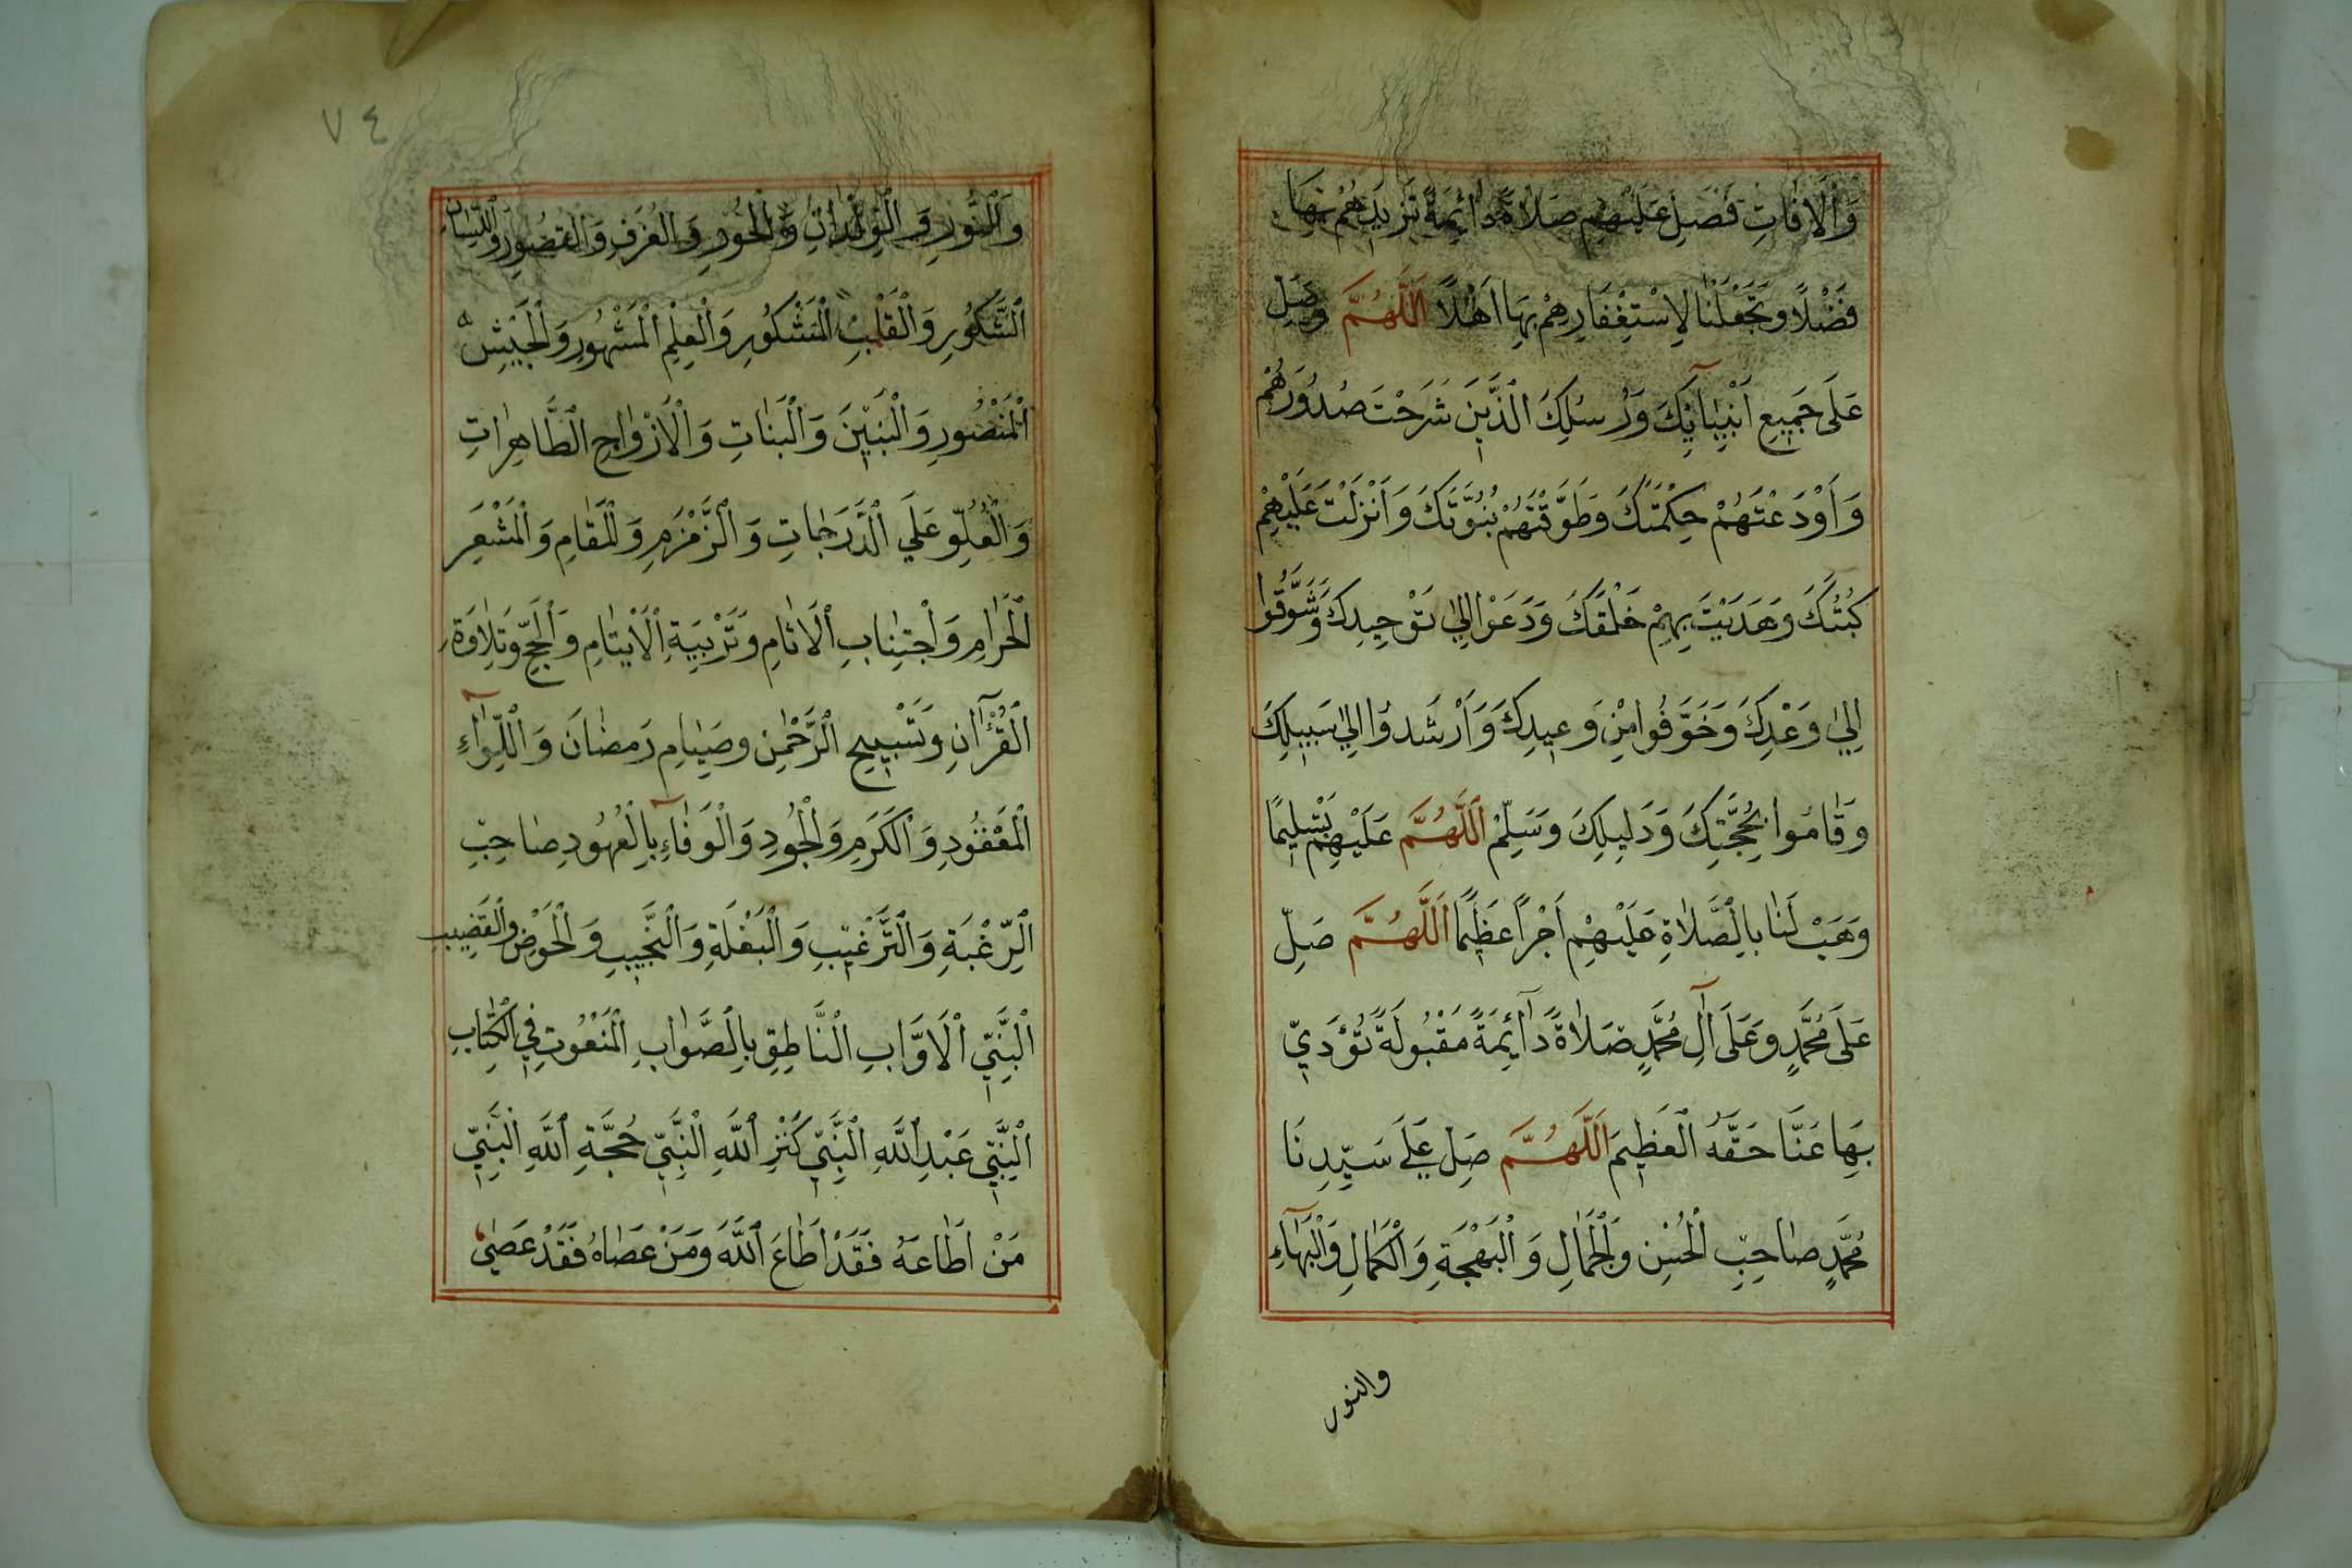 وَالْاٰفَاتِ فَصَلِّ عَلَيْهِمْ صَلَاةً دَآئِمَةً تَزِيدُهُمْ بِهَا
فَضْلًا وَتَجْعَلْنَا لِاِسْتِغْفَارِهِمْ بِهَا اَهْلًا اَللّٰهُمَّ وَصَلِّ
عَلَى جَمِيعِ اَنْبِيَآئِكَ وَرُسُلِكَ الَّذِينَ شَرَحْتَ صُدُورَهُمْ
وَاَوْدَعْتَهُمْ حِكْمَتَكَ وَطَوَّقْتَهُمْ نُبُوَّتَكَ وَاَنْزَلْتَ عَلَيْهِمْ
كُتُبَكَ وَهَدَيْتَ بِهِمْ خَلْقَكَ وَدَعَوْا اِلٰي تَوْحِيدِكَ وَشَوَّقُوا
اِلٰي وَعْدِكَ وَخَوَّفُوا مِنْ وَعِيدِكَ وَاَرْشَدُوا اِلٰي سَبِيلِكَ
وَقَامُوا بِحُجَّتِكَ وَدَلِيلِكَ وَسَلِّمْ اَللّٰهُمَّ عَلَيْهِمْ تَسْلِيمًا
وَهَبْ لَنَا بِالصَّلَاةِ عَلَيْهِمْ اَجْرًا عَظِيمًا اَللّٰهُمَّ صَلِّ
عَلَى مُحَمَّدٍ وَعَلَى اٰلِ مُحَمَّدٍ صَلَاةً دَآئِمَةً مَقْبُولَةً تُؤَدِّي
بِهَا عَنَّا حَقَّهُ الْعَظِيمَ اَللّٰهُمَّ صَلِّ عَلَى سَيِّدِنَا
مُحَمَّدٍ صَاحِبِ الْحُسْنِ وَالْجَمَالِ وَالْبَهْجَةِ وَالْكَمَالِ وَالْبَهَآءِ
والنور
٧٤
وَالنُّورِ وَالْوِلْدَانِ وَالْحُورِ وَالْغُرَفِ وَالْقُصُورِ وَاللِّسَانِ
الشَّكُورِ وَالْقَلْبِ الْمَشْكُورِ وَالْعِلْمِ الْمَشْهُورِ وَالْجَيْشِ
الْمَنْصُورِ وَالْبَنِينَ وَالْبَنَاتِ وَالْاَزْوَاجِ الطَّاهِرَاتِ
وَالْعُلُوِّ عَلَي الدَّرَجَاتِ وَالزَّمْزَمِ وَالْمَقَامِ وَالْمَشْعَرِ
الْحَرَامِ وَاجْتِنَابِ الْاٰثَامِ وَتَرْبِيَةِ الْاَيْتَامِ وَالْحَجِّ وَتِلَاوَةِ
الْقُرْاٰنِ وَتَسْبِيحِ الرَّحْمٰنِ وَصِيَامِ رَمَضَانَ وَاللِّوَآءِ
الْمَعْقُودِ وَالْكَرَمِ وَالْجُودِ وَالْوَفَآءِ بِالْعُهُودِ صَاحِبِ
الرَّغْبَةِ وَالتَّرْغِيبِ وَالْبَغْلَةِ وَالنَّجِيبِ وَالْحَوْضِ وَالْقَضِيبِ
النَّبِيِّ الْاَوَّابِ النَّاطِقِ بِالصَّوَابِ الْمَنْعُوتِ فِي الْكِتَابِ
النَّبِيِّ عَبْدِ اللّٰهِ النَّبِيِّ كَنْزِ اللّٰهِ النَّبِيِّ حُجَّةِ اللّٰهِ النَّبِيِّ
مَنْ اَطَاعَهُ فَقَدْ اَطَاعَ اللّٰهَ وَمَنْ عَصَاهُ فَقَدْ عَصٰي